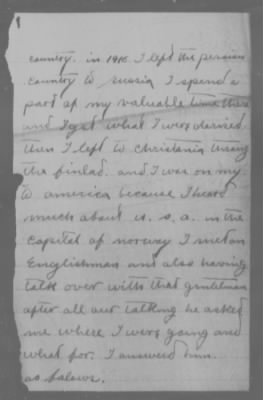 country. in 1916. I left the persian
country to russia I spend a
part of my valuable time there
and I get what I wers desired
then I left to christania thraug
the finlad. and I was on my
to america because I heard
much about u. s. a. in the
capital of norway I met an
Englishman and also having
talk over with that gentelman
after all our talking he asked
me where I wers going and
what for. I answerd him.
as falows.